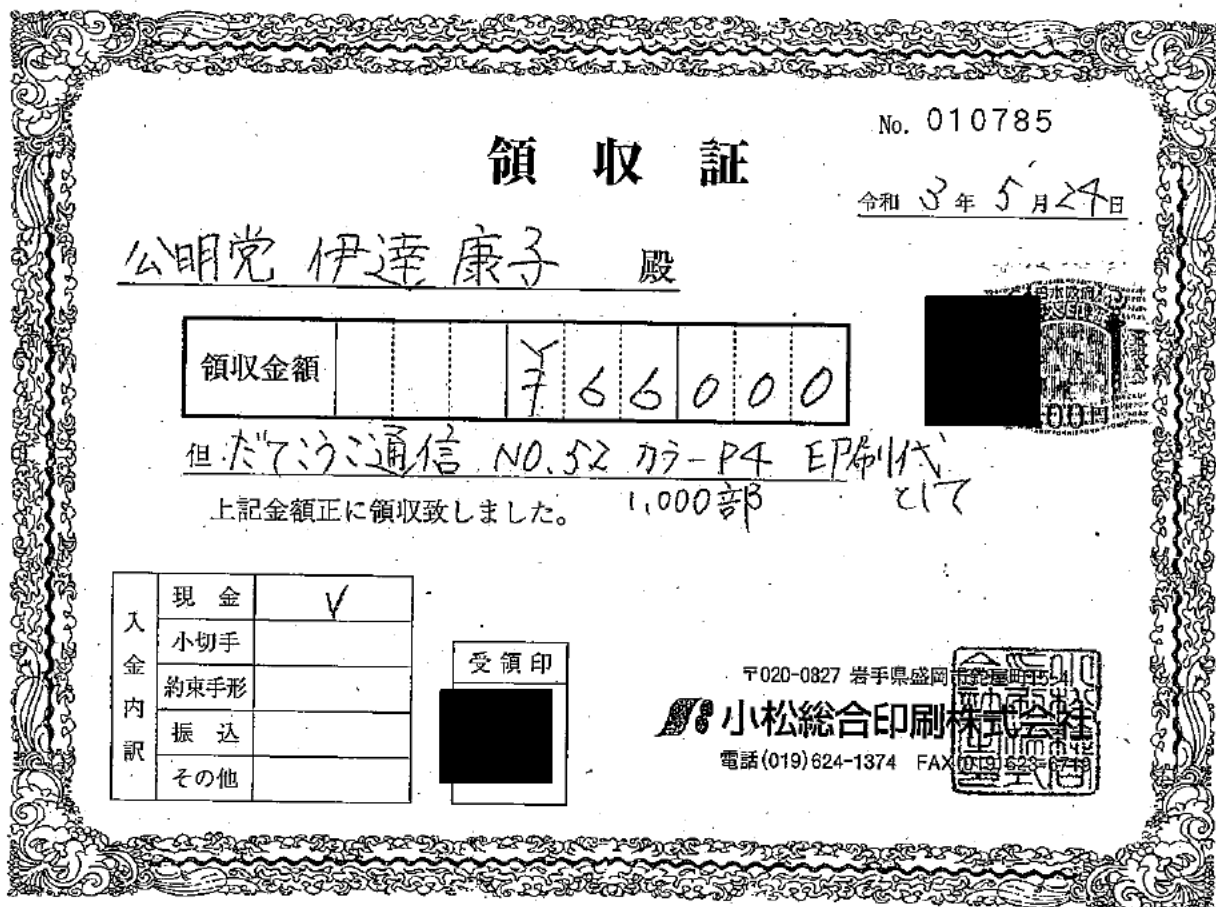 No. 010785
領収証
令和 3年 5月24日
公明党 伊達康子 殿
領収金額 ¥66000
但 だてこうこ通信 NO.52 カラーP4 印刷代
1,000部 として
上記金額正に領収致しました。
入金内訳
現金 V
小切手
約束手形
振込
その他
受領印
日本政府
〒020-0827 岩手県盛岡市鉈屋町15-4
小松総合印刷株式会社
電話(019)624-1374 FAX(019)623-6719